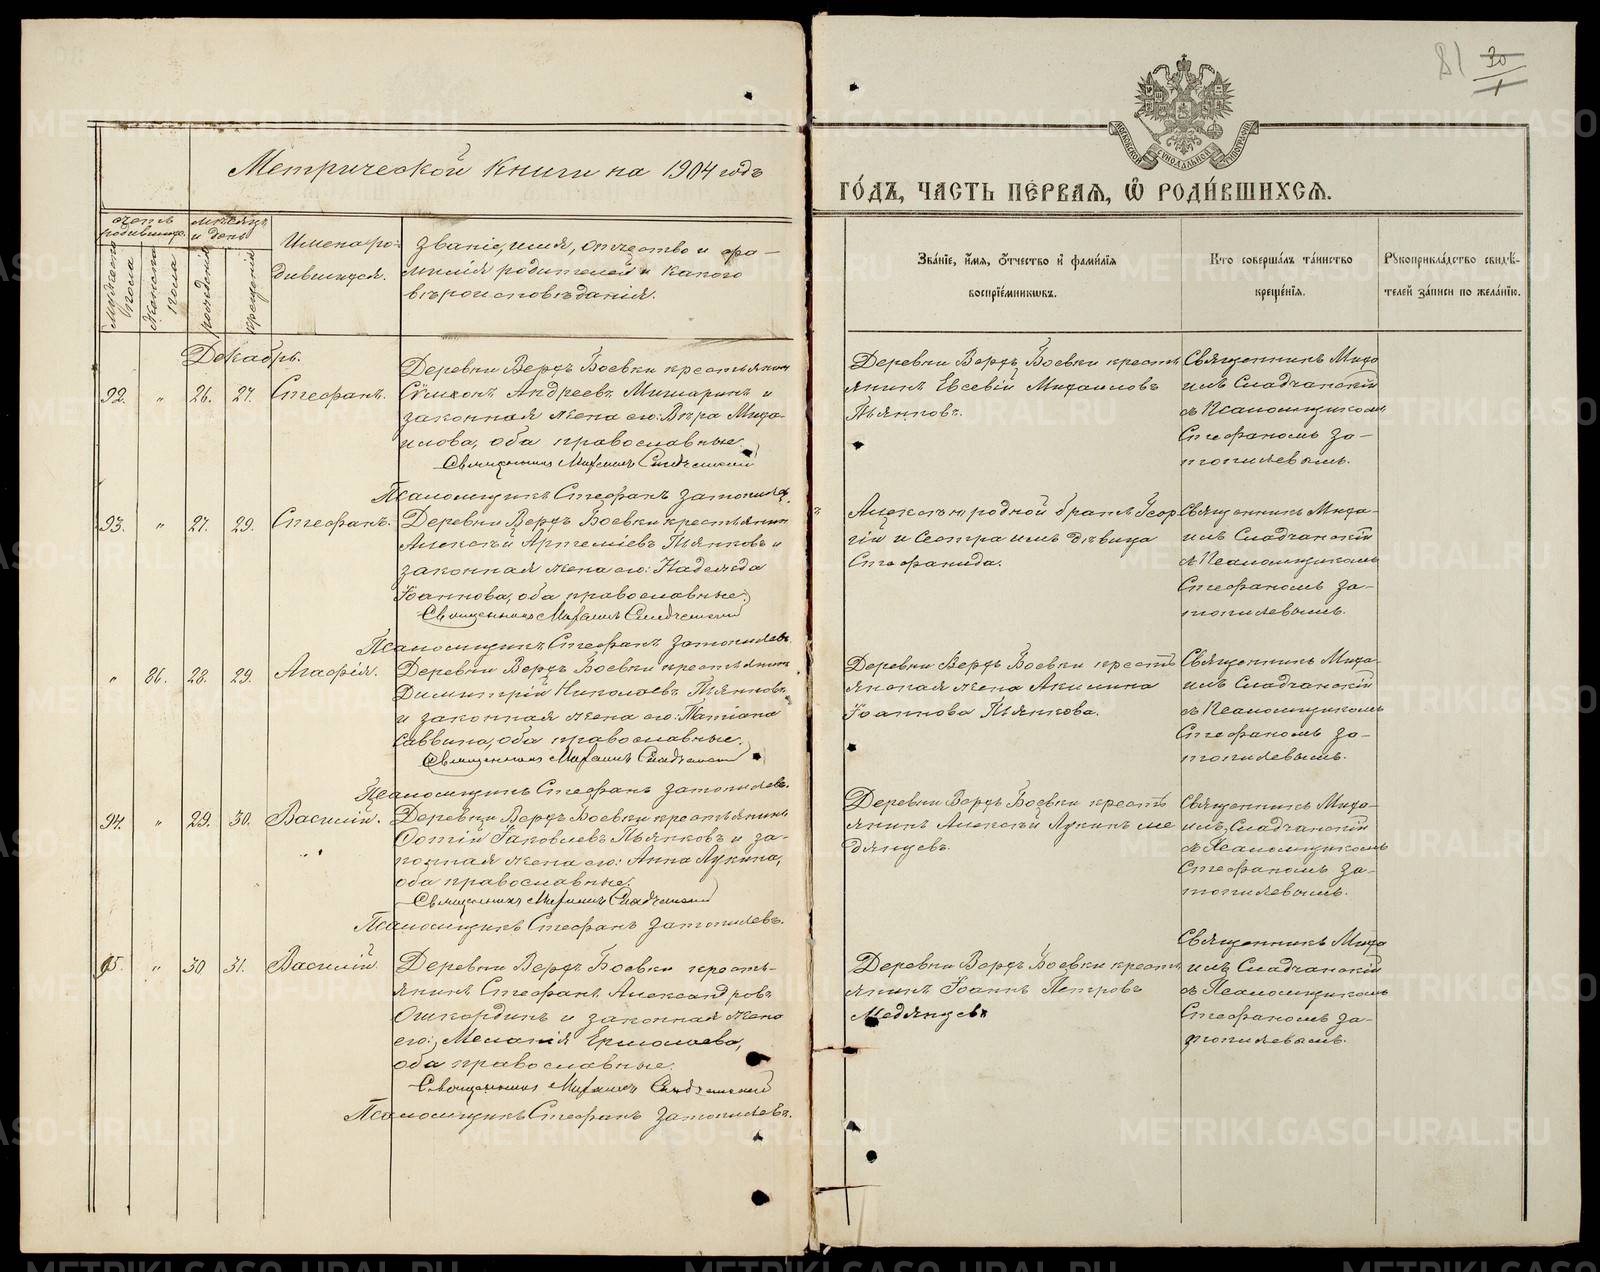 81 30
1
Метрической книги на 1904 годъ
ГО́ДЪ, ЧАСТЬ ПЕ́РВАЯ, Ѡ҆ РОДИ́ВШИХСЯ.
МОСКОВСКОЙ СѴНОДАЛЬНОЙ ТИПОГРАФІИ
счетъ родившихс.
мѣсяцъ и день
Мужеска пола
Женска пола
рожденія
крещенія
Имена ро-
дившихся.
Званіе, имя, отчество и фа-
милія родителей и какого
вѣроисповѣданія.
Зва́нїе, и҆́мя, ѻ҆́тчество и҆ фами́лїя
воспрїе́мникѡвъ.
Кто̀ соверша́лъ та́инство
креще́нїя.
Рꙋкоприкла́дство свидѣ́-
телей за́писи по жела́нїю.
Декабрь.
92. " 26. 27. Стефанъ.
Деревни Верхъ Боевки крестьянин
Сѵмеонъ Андреевъ Мишаринъ и
законная жена его: Вѣра Миха-
илова, оба православные.
Священникъ Михаилъ Сладчанский
Псаломщикъ Стефанъ Затопляев.
Деревни Верхъ Боевки кресть
янинъ Евсевій Михаиловъ
Пьянковъ.
Священникъ Миха
илъ Сладчанскій
съ Псаломщикомъ
Стефаномъ За-
топляевымъ.
93. " 27. 29. Стефанъ.
Деревни Верхъ Боевки крестьянин
Алексѣй Артеміевъ Пьянковъ и
законная жена его: Надежда
Іоаннова, оба православные.
Священникъ Михаилъ Сладчанский
Псаломщикъ Стефанъ Затопляевъ
Алексѣю родной братъ Геор
гій и сестра имъ дѣвица
Стефанида.
Священникъ Миха-
илъ Сладчанскій
съ Псаломщикомъ
Стефаномъ За-
топляевымъ.
" 86. 28. 29. Агафія.
Деревни Верхъ Боевки крестьянинъ
Димитрій Николаевъ Пьянковъ
и законная жена его: Татіана
Саввина, оба православные.
Священникъ Михаилъ Сладчанский
Псаломщикъ Стефанъ Затопляевъ.
Деревни Верхъ Боевки кресть
янская жена Акилина
Іоаннова Пьянкова.
Священникъ Миха-
илъ Сладчанскій
съ Псаломщикомъ
Стефаномъ За-
топляевымъ.
94. " 29. 30. Василій.
Деревни Верхъ Боевки крестьянинъ
Фотій Іаковлевъ Пьянковъ и за-
конная жена его: Анна Лукина,
оба православные.
Священникъ Михаилъ Сладчанский
Псаломщикъ Стефанъ Затопляевъ.
Деревни Верхъ Боевки кресть
янинъ Алексѣй Лукинъ Ме
дянцевъ.
Священникъ Миха-
илъ Сладчанскій
съ Псаломщикомъ
Стефаномъ За-
топляевымъ.
95. " 30 31. Василій.
Деревни Верхъ Боевки кресть-
янинъ Стефанъ Александровъ
Ошкординъ и законная жена
его: Меланія Ермолаева,
оба православные.
Священникъ Михаилъ Сладчанский
Псаломщикъ Стефанъ Затопляевъ.
Деревни Верхъ Боевки кресть
янинъ Іоаннъ Петровъ
Медянцевъ
Священникъ Миха
илъ Сладчанскій
съ Псаломщикомъ
Стефаномъ За-
топляевымъ.
METRIKI.GASO-URAL.RU